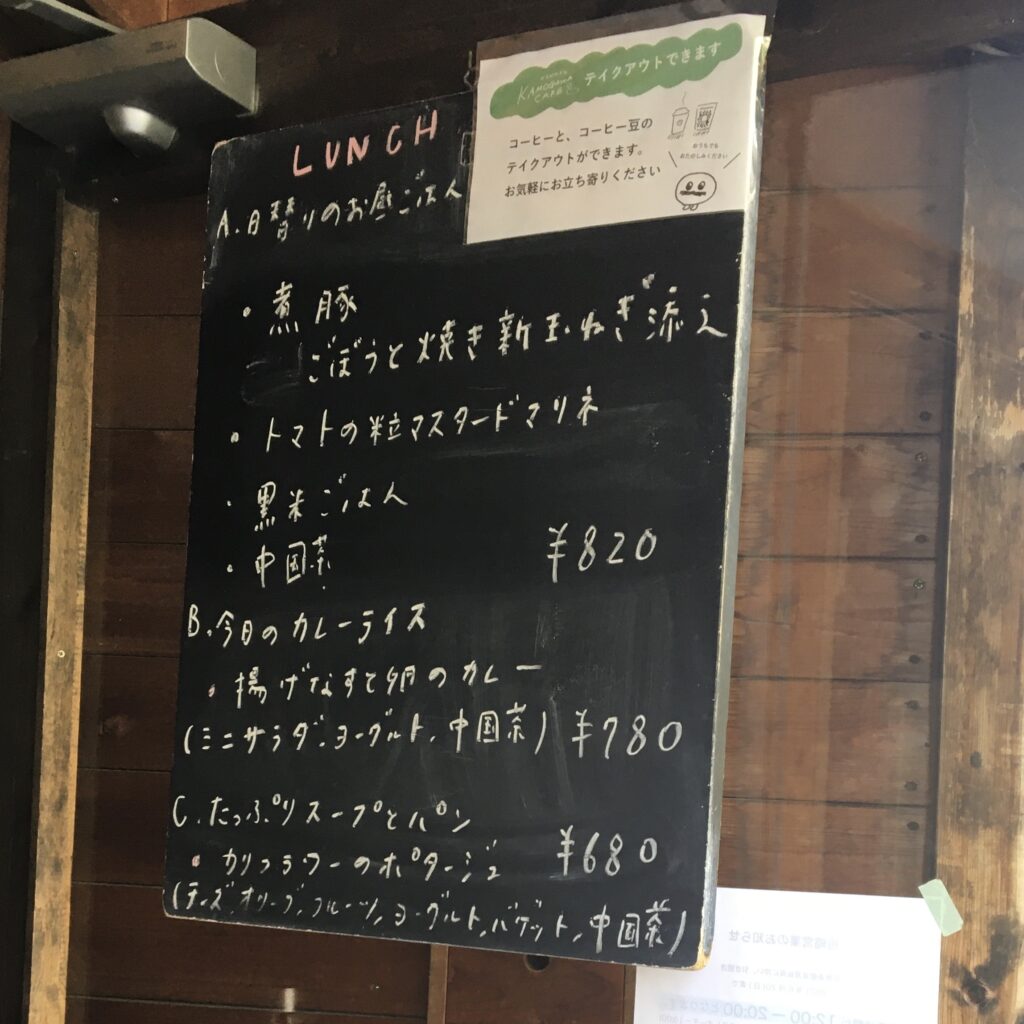 LUNCH
A.日替りのお昼ごはん
・煮豚
ごぼうと焼き新玉ねぎ添え
・トマトの粒マスタードマリネ
・黒米ごはん
・中国茶 ¥820
B.今日のカレーライス
・揚げなすと卵のカレー
(ミニサラダ、ヨーグルト、中国茶) ¥780
C.たっぷりスープとパン
・カリフラワーのポタージュ ¥680
(チーズ、オリーブ、フルーツ、ヨーグルト、バゲット、中国茶)
KAMOGAWA CAFE テイクアウトできます
コーヒーと、コーヒー豆の
テイクアウトができます。
お気軽にお立ち寄りください
おうちでも
おたのしみください
営業のお知らせ
12:00ー20:00となります